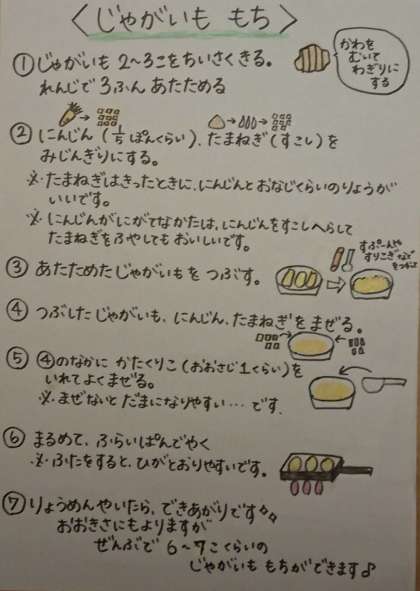 〈じゃがいも もち〉
①じゃがいも 2～3こをちいさくきる。
れんじで3ぷん あたためる
かわを
むいて
わぎりに
する
②にんじん(1/5ぽんくらい)、たまねぎ(すこし)を
みじんぎりにする。
※たまねぎはきったときに、にんじんとおなじくらいのりょうが
いいです。
※にんじんがにがてなかたは、にんじんをすこしへらして
たまねぎをふやしてもおいしいです。
③あたためたじゃがいもをつぶす。
すぷーんや
すりこぎなどで
をつぶす
④つぶしたじゃがいも、にんじん、たまねぎをまぜる。
⑤④のなかに かたくりこ(おおさじ1くらい)を
いれてよくまぜる。
※まぜないとだまになりやすい…です。
⑥まるめて、ふらいぱんでやく
※ふたをすると、ひがとおりやすいです。
⑦りょうめんやいたら、できあがりです
おおきさにもよりますが
ぜんぶで 6～7こくらいの
じゃがいも もちができます♪